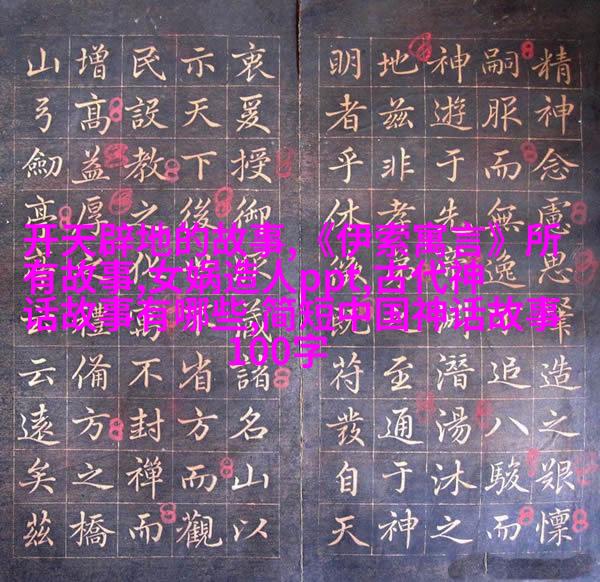 开天辟地的故事,《伊索寓言》所
有故事,女娲造人ppt,古代神
话故事有哪些,简短中国神话故事
100字
精神念慮思造之艱懍
嗣服而無逸追八駿而
神遊于先潛湯沐之
地茲非孝至通于神
明者乎休符發自天
衷爰授御諸名山以
示天下後省方而觀
民設教之化萬不封禪而
增高益厚禮備方之橋
山弓劒云遠矣茲